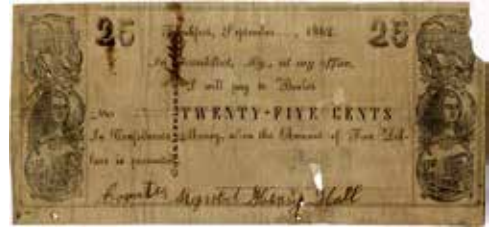 25 Frankfort, September ..., 1862. 25
In Frankfort, Ky., at my office,
I will pay to Bearer
No.
TWENTY-FIVE CENTS
In Confederate Money, when the Amount of Five Dol-
lars is presented
Henry Hall